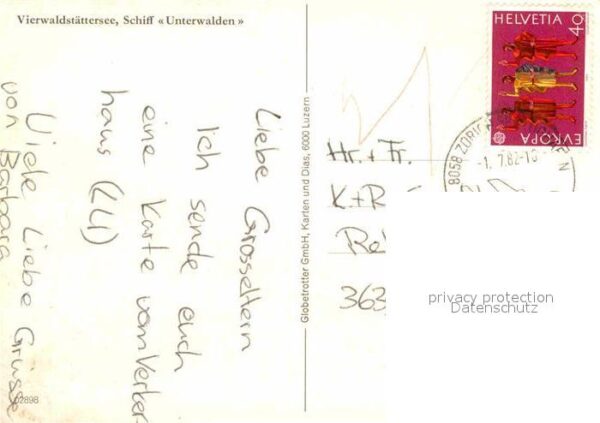 Vierwaldstättersee, Schiff «Unterwalden»
Liebe Grosseltern
Ich sende euch
eine Karte vom Verker-
haus (LU)
Viele Liebe Grüsse
von Barbara
02898
Globetrotter GmbH, Karten und Dias, 6000 Luzern
HELVETIA 40
EUROPA
8058 ZÜRICH
-1.7.82-10
Hr. + Fr.
K+R
363
privacy protection
Datenschutz